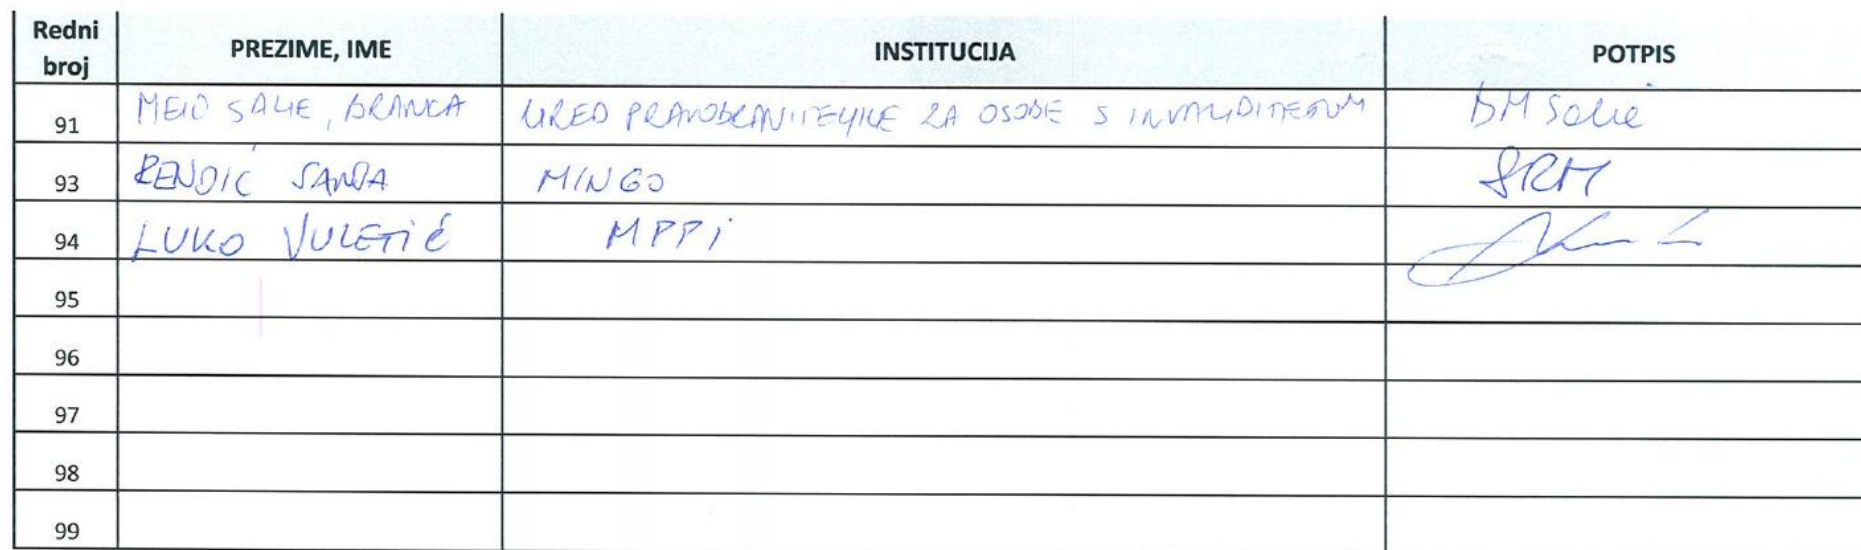 Redni broj PREZIME, IME INSTITUCIJA POTPIS
91 MEIĆ SALIE, BRANKA URED PRAVOBRANITELJICE ZA OSOBE S INVALIDITETOM BMSalie
93 RENDIĆ SANDA MINGO SRM
94 LUKO VULETIĆ MPPI
95
96
97
98
99